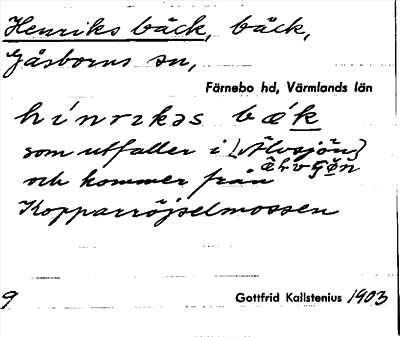 Henriks bäck, bäck,
Gåsborns sn,
Färnebo hd, Värmlands län
hínrɩkəs bǽk
som utfaller i [Älvsjön]
och kommer från
Kopparröjselmossen
9 Gottfrid Kallstenius 1903